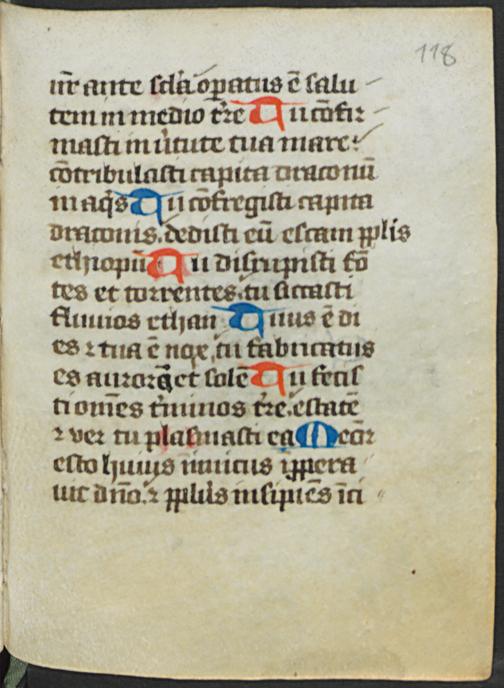 118
nr̄ ante scl̄a opatus ē salu
tem in medio tr̄e Tu cōfir
masti in ūtute tua mare
cōtribulasti capita draconū
in aq̄s Tu cōfregisti capita
draconis. dedisti eū escam pplis
ethiopū Tu disrupisti fō
tes et torrentes. tu siccasti
fluuios ethan Tuus ē di
es ⁊ tua ē nox, tu fabricatus
es aurorā et solē Tu fecis
ti om̄es t̄minos tr̄e. estatē
⁊ ver tu plasmasti ea Memor
esto huius inimicus īppera
uit dn̄o. ⁊ ppl̄us insipiēs īci